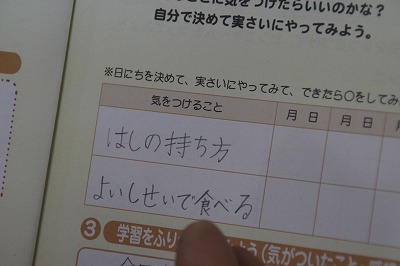 に気をつけたらいいのかな？
自分で決めて実さいにやってみよう。
※日にちを決めて、実さいにやってみて、できたら○をしてみ
気をつけること 月 日 月 日 月
はしの持ち方
よいしせいで食べる
3 学習をふり
よう（気がついたこと